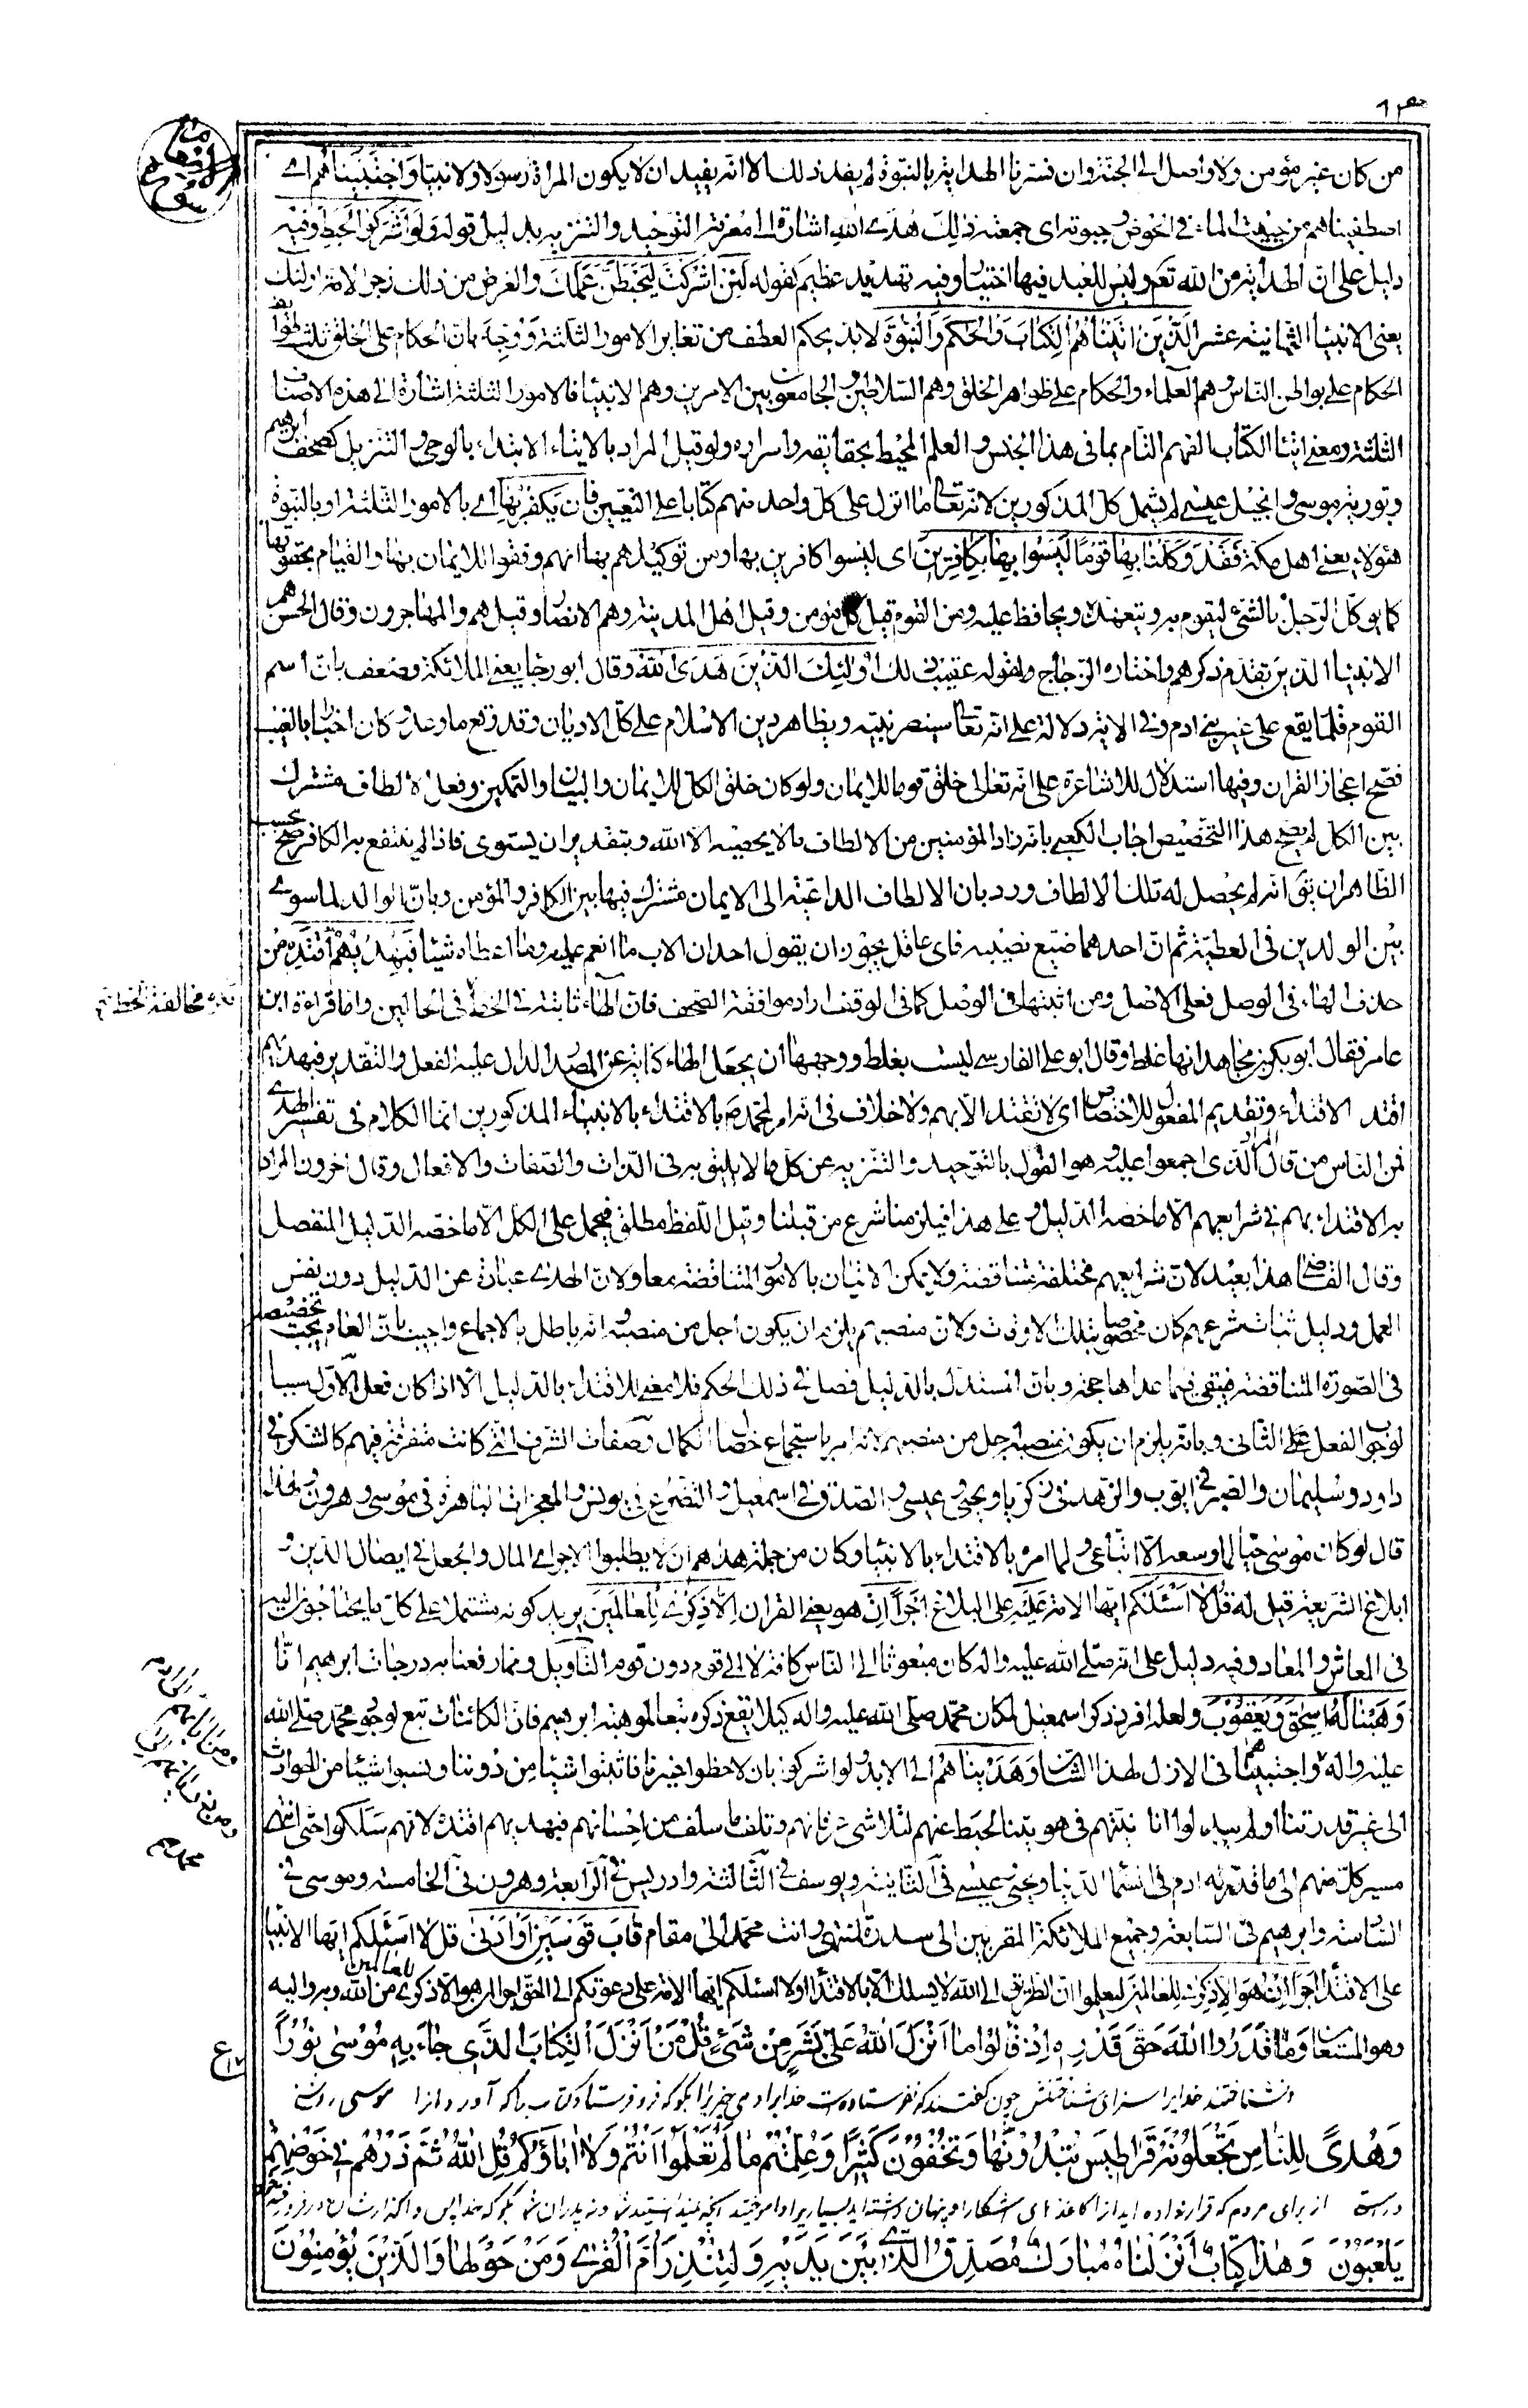 من كان غير مؤمن ولا واصل الى الجنة وان فسرنا الهداية بالنبوة لم يفد ذلك الا انه يفيد ان لا يكون المراة رسولا ولا نبيا وَاجْتَبَيْنَاهُمْ اے
اصطفيناهم من جبيت الماء في الحوض وجبوته اى جمعته ذٰلِكَ هُدَى اللهِ اشارة الى معرفة التوحيد والتنزيه بدليل قوله وَلَوْ أَشْرَكُوا لَحَبِطَ وفيه
دليل على ان الهداية من الله تعم وليس للعبد فيها اختيار وفيه تهديد عظيم كقوله لَئِنْ اَشْرَكْتَ لَيَحْبَطَنَّ عَمَلُكَ والغرض من ذلك زجر الامة اولئك
يعنى الانبياء الثمانية عشر الَّذِينَ اٰتَيْنَاهُمُ الْكِتَابَ وَالْحُكْمَ وَالنُّبُوَّةَ لا بد بحكم العطف من تغاير الامور الثلثة ووجه بان الحكام على الخلق ثلث طوائف
الحكام على بواطن الناس وهم العلماء والحكام على ظواهر الخلق وهم السلاطين والجامعون بين الامرين وهم الانبياء فالامور الثلثة اشارة الى هذه الاصناف
الثلثة ومعنى ايتاء الكتاب الفهم التام بما فى هذا الجنس والعلم المحيط بحقايقه واسراره ولو قيل المراد بالايتاء الابتداء بالوحى والتنزيل كصحف ابرهيم
وتورية موسى وانجيل عيسى لم يشمل كل المذكورين لانه تعالى ما انزل على كل واحد منهم كتابا على التعيين فَاِن يَكْفُرْ بِهَا اے بالامور الثلثة او بالنبوة
هٰؤلاء يعنى اهل مكة فَقَدْ وَكَّلْنَا بِهَا قَوْمًا لَيْسُوا بِهَا بِكَافِرِينَ اى ليسوا كافرين بها ومن توكيلهم بها انهم وفقوا للايمان بها والقيام بحقوقها
كما يوكل الرجل بالشئ ليقوم به ويتعهده ويحافظ عليه ومن القوم قيل كل مؤمن وقيل اهل المدينة وهم الانصار وقيل هم والمهاجرون وقال الحسن هم
الانبياء الذين تقدم ذكرهم واختاره الزجاج ولقوله عقيب ذلك اُولٰئِكَ الَّذِينَ هَدَى اللهُ وقال ابو رجا يعنى الملائكة وضعف بان اسم
القوم قلما يقع على غير بنى ادم وفى الاية دلالة على انه تعالى سينصر نبيه ويظاهر دين الاسلام على كل الاديان وقد وقع ما وعد وكان اخبارا بالغيب
فصح اعجاز القران وفيها استدلال للاشاعرة على انه تعالى خلق قوما للايمان ولو كان خلق الكل للايمان والبيان والتمكين وفعل الالطاف مشترك
بين الكل لم يصح هذا التخصيص اجاب الكعبى بانه زاد المؤمنين من الالطاف ما لا يحصيه الا الله وبتقدير ان يستوى فاذا لم ينتفع به الكافر صح بحسب
الظاهر ان يق انه لم يحصل له تلك الالطاف ورد بان الالطاف الداعية الى الايمان مشترك فيها بين الكافر والمؤمن وبان الوالد لما سوى
بين الولدين فى العطية ثم ان احدهما ضيع نصيبه فاى عاقل يجوز ان يقول احد ان الاب ما انعم عليه وما اعطاه شيئا فَبِهُدَاهُمُ اقْتَدِهْ من
حذف الهاء فى الوصل فعلى الاصل ومن اثبتها فى الوصل كما فى الوقف اراد موافقة المصحف فان الهاء ثابتة فى الخط فى الحالين واما قراءة ابن
عامر فقال ابو بكر بن مجاهد انها غلط وقال ابو على الفارسى ليست بغلط ووجهها ان يجعل الهاء كناية عن المصدر الدال عليه الفعل والتقدير فبهديهم
اقتد الاقتداء وتقديم المفعول للاختصاص اى لا تقتد الا بهم ولا خلاف فى انه امر لمحمد ص بالاقتداء بالانبياء المذكورين انما الكلام فى تفسير الهدى
فمن الناس من قال المراد الذى اجمعوا عليه وهو القول بالتوحيد والتنزيه عن كل ما لا يليق به فى الذات والصفات والافعال وقال اخرون المراد
به الاقتداء بهم فى شرايعهم الا ما خصه الدليل وعلى هذا فيلزمنا شرع من قبلنا وقيل اللفظ مطلق فيحمل على الكل الا ما خصه الدليل المنفصل
وقال القاضى هذا بعيد لان شرايعهم مختلفة متناقضة ولا يمكن الاتيان بالامور المتناقضة معا ولان الهدى عبارة عن الدليل دون نفس
العمل ودليل ثبات شرعهم كان مخصوصا بتلك الاوقات ولان منصبهم يلزم ان يكون اجل من منصبه وانه باطل بالاجماع واجيب بان العام يجب تخصيصه
فى الصورة المتناقضة فيبقى فيما عداها حجة وبان المستدل بالدليل فصل فى ذلك الحكم فلا معنى للاقتداء بالدليل الا اذا كان فعل الاول سببا
لوجوب الفعل على الثانى وبانه يلزم ان يكون منصبه اجل من منصبهم لانه امر باستجماع خصال الكمال وصفات الشرف التى كانت متفرقة فيهم كالشكر فى
داود وسليمان والصبر فى ايوب والزهد فى زكريا ويحيى وعيسى والصدق فى اسمعيل والتضرع فى يونس والمعجزات الباهرة فى موسى وهرون ولهذا
قال لو كان موسى حيا لما وسعه الا اتباعى ولما امره بالاقتداء بالانبياء وكان من جملة هداهم ان لا يطلبوا الاجر اى المال والجعل فى ايصال الدين و
ابلاغ الشريعة قيل له قُلْ لَا اَسْئَلُكُمْ ايها الامة عَلَيْهِ على البلاغ اَجْرًا اِنْ هُوَ يعنى القران اِلَّا ذِكْرٰى لِلْعَالَمِينَ يريد كونه مشتملا على كل ما يحتاجون اليه
فى المعاش والمعاد وفيه دليل على انه صلى الله عليه واله كان مبعوثا الى الناس كافة لا الى قوم دون قوم التأويل ومما رفعنا به درجات ابرهيم انا
وَهَبْنَا لَهُ اِسْحٰقَ وَيَعْقُوبَ ولعله افرد ذكر اسمعيل لمكان محمد صلى الله عليه واله كيلا يقع ذكره تبعا لموهبة ابرهيم فان الكائنات تبع لوجود محمد صلى الله
عليه واله واجتبيناهم فى الازل لهذا الشان وَهَدَيْنَاهُمْ الى الابد ولو اشركوا بان لاحظوا غيرنا فاثبتوا شيئا من دوننا ونسبوا شيئا من الحوادث
الى غير قدرتنا لحبط عنهم لتلاشى عرفانهم وتلف ما سلف من احسانهم فبهديهم اقتد لانهم سلكوا حتى انتهى
مسير كل منهم الى ما قدر له ادم فى السماء الدنيا ويحيى وعيسى فى الثانية ويوسف فى الثالثة وادريس فى الرابعة وهرون فى الخامسة وموسى فى
السادسة وابرهيم فى السابعة وجميع الملائكة المقربين الى سدرة المنتهى وانت محمد الى مقام قَابَ قَوْسَيْنِ اَوْ اَدْنٰى قل لا اسئلكم ايها الانبياء
على الاقتداء اجرا ان هو الا ذكرى للعالمين ليعلموا ان الطريق الى الله لا يسلك الا بالاقتداء او لا اسئلكم ايها الامة على دعوتكم الى الحق اجرا ان هو الا ذكرى للعالمين من الله وبه واليه
وهو المستعان وَمَا قَدَرُوا اللهَ حَقَّ قَدْرِهِ اِذْ قَالُوا مَا اَنْزَلَ اللهُ عَلٰى بَشَرٍ مِنْ شَيْءٍ قُلْ مَنْ اَنْزَلَ الْكِتَابَ الَّذِى جَاءَ بِهِ مُوسٰى نُورًا
ونشناختند خدايرا سزاى شناختنش چون گفتند كه نفرستاده است خدا بر ادمى چيزيرا بگو كه فرو فرستاد كتاب را كه آورد آنرا موسى روشنى
وَهُدًى لِلنَّاسِ تَجْعَلُونَهُ قَرَاطِيسَ تُبْدُونَهَا وَتُخْفُونَ كَثِيرًا وَعُلِّمْتُمْ مَا لَمْ تَعْلَمُوا اَنْتُمْ وَلَا اٰبَاؤُكُمْ قُلِ اللهُ ثُمَّ ذَرْهُمْ فِى خَوْضِهِمْ
يَلْعَبُونَ وَهٰذَا كِتَابٌ اَنْزَلْنَاهُ مُبَارَكٌ مُصَدِّقُ الَّذِى بَيْنَ يَدَيْهِ وَلِتُنْذِرَ اُمَّ الْقُرٰى وَمَنْ حَوْلَهَا وَالَّذِينَ يُؤْمِنُونَ